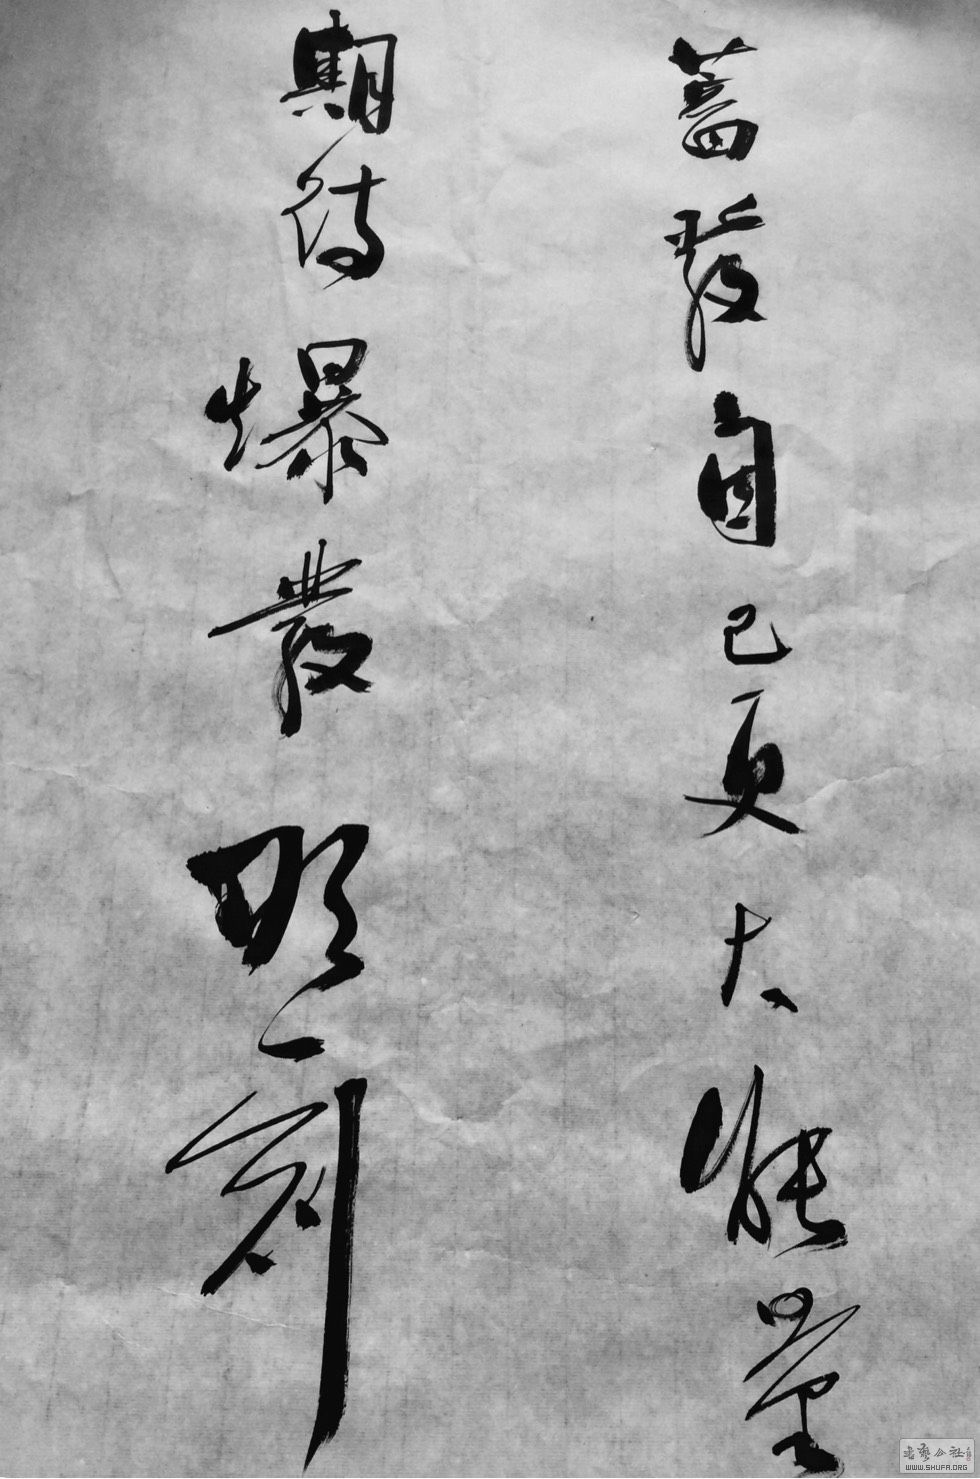 蓄發自己更大能量
期待爆發那一刻
WWW.SHUFA.ORG